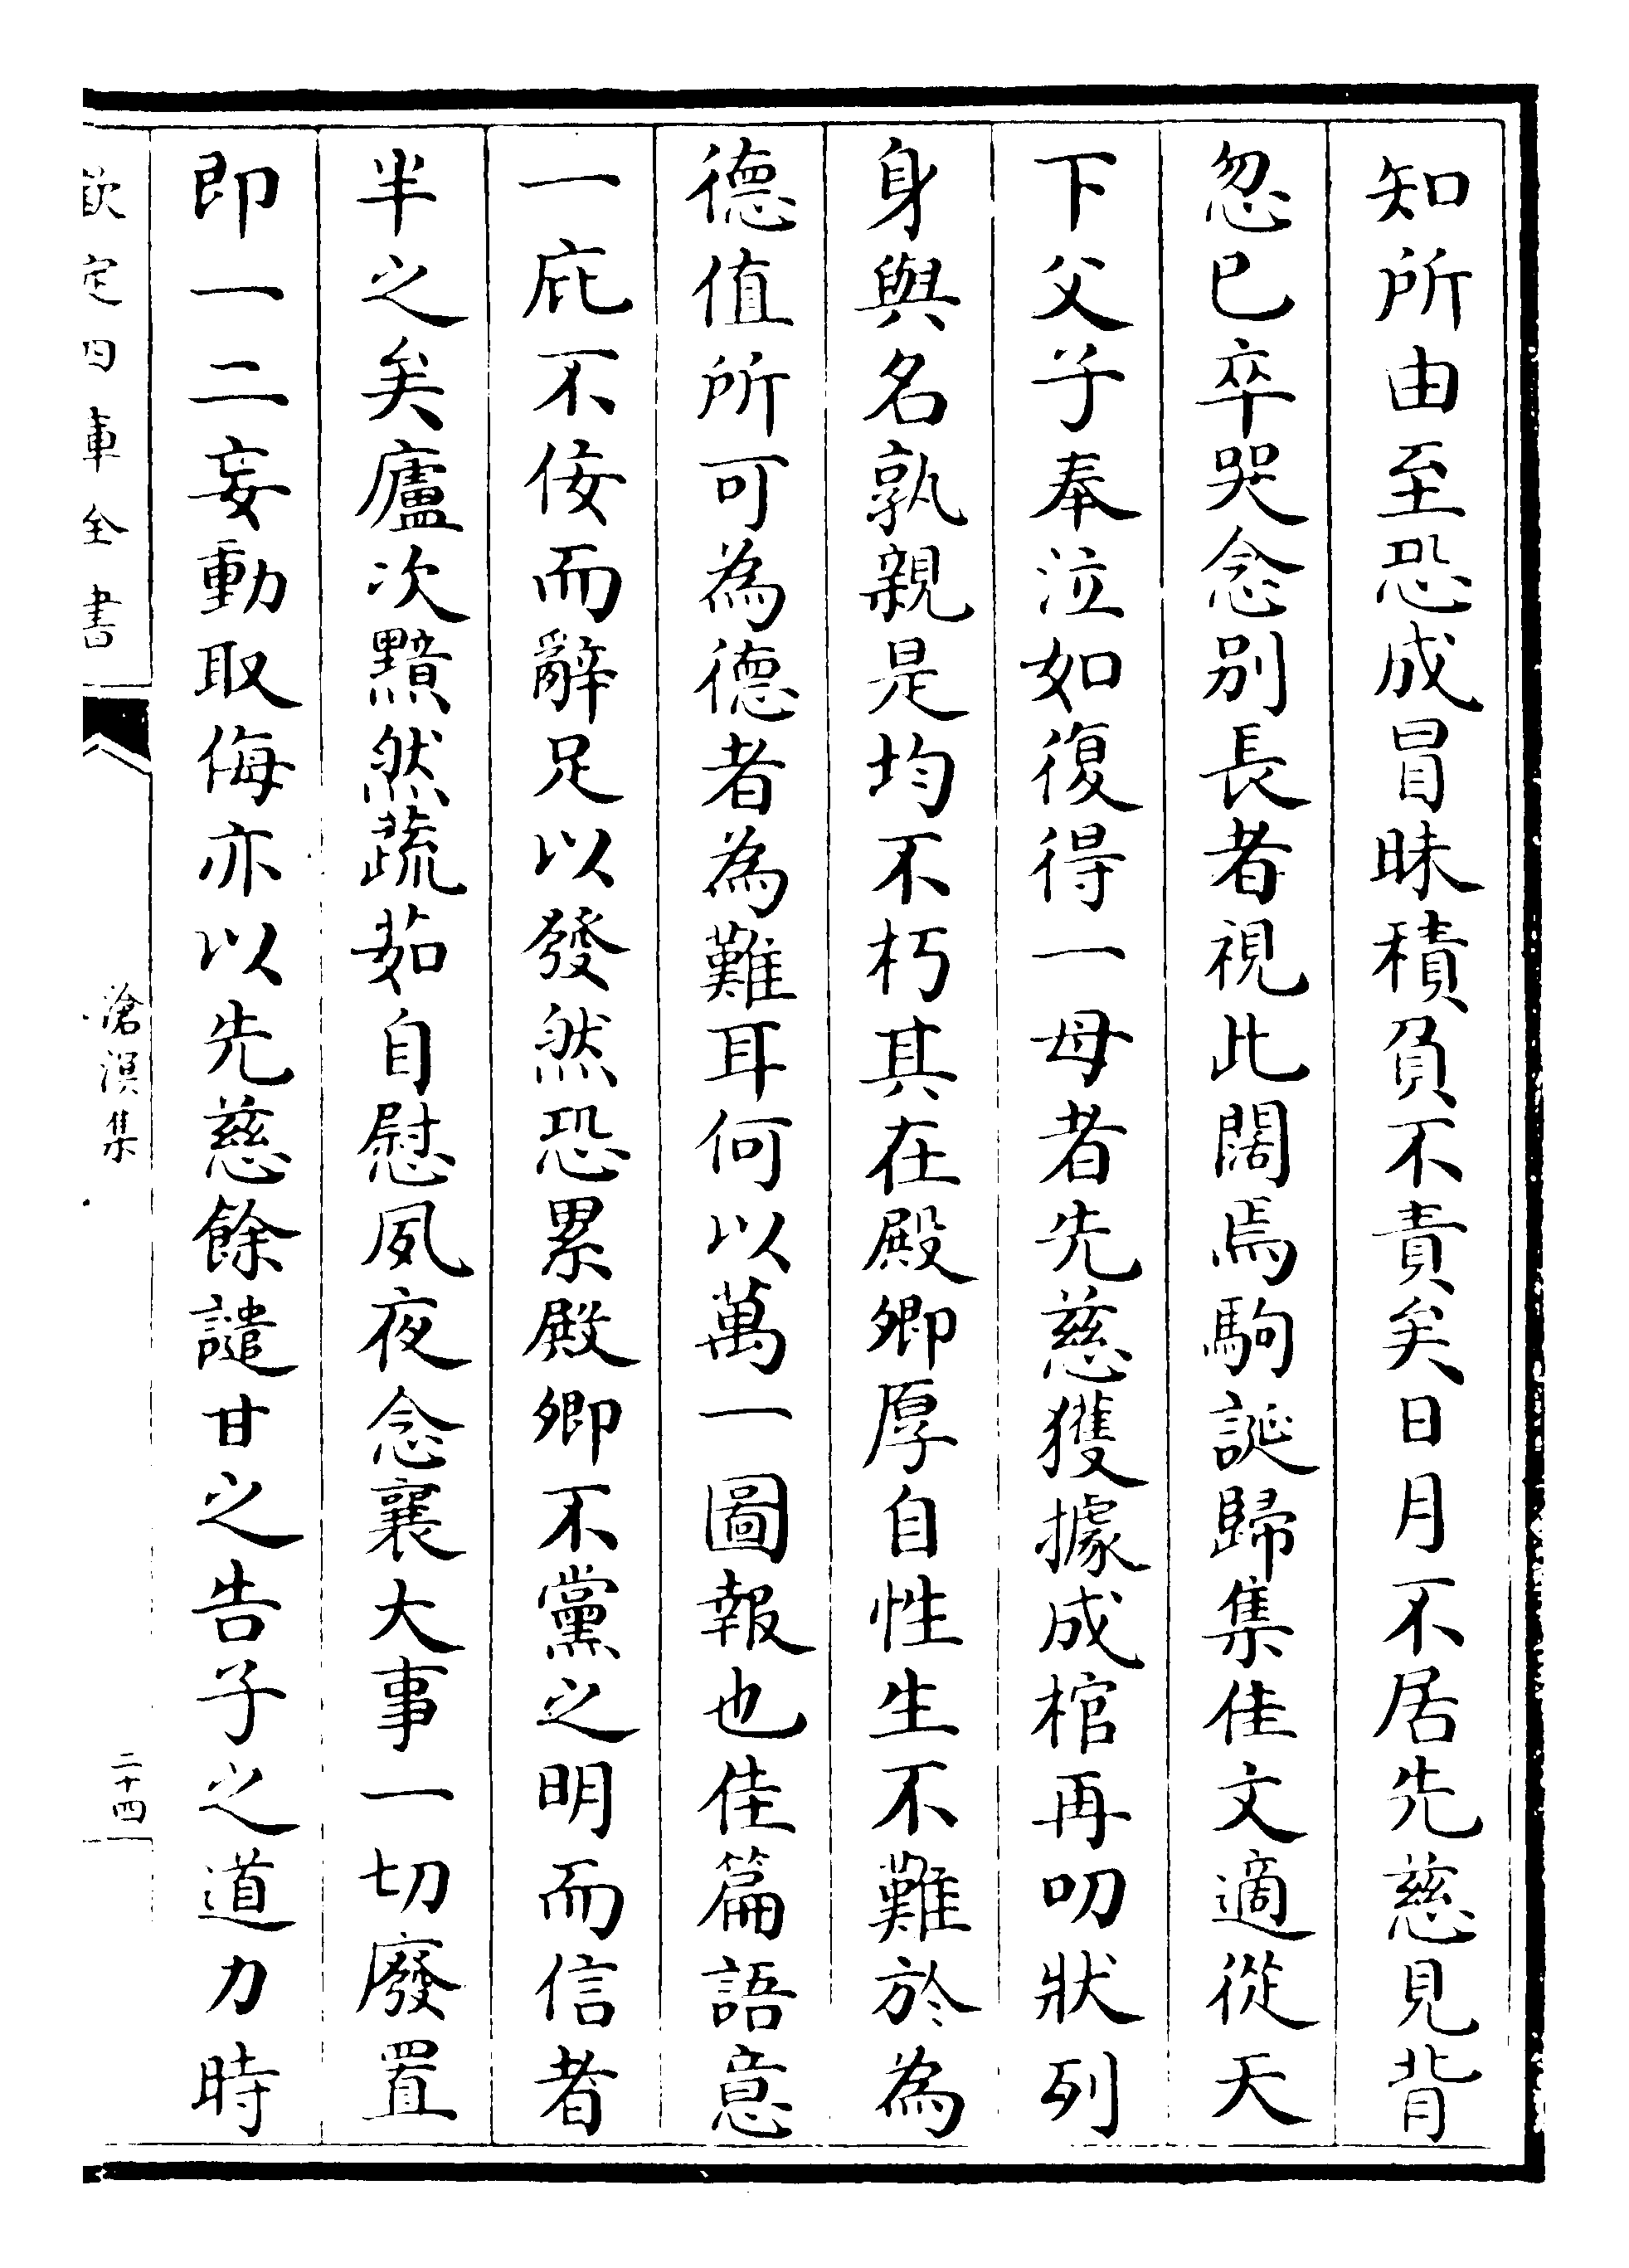 知所由至恐成冒昧積負不責矣日月不居先慈見背
忽已卒哭念别長者視此闊焉駒誕歸集佳文適從天
下父子奉泣如復得一母者先慈獲據成棺再叨狀列
身與名孰親是均不朽其在殿卿厚自性生不難於為
德值所可為德者為難耳何以萬一圖報也佳篇語意
一庇不佞而辭足以發然恐累殿卿不黨之明而信者
半之矣廬次黯然蔬茹自慰夙夜念襄大事一切廢置
即一二妄動取侮亦以先慈餘譴甘之告子之道力時
欽定四庫全書
滄溟集
二十四